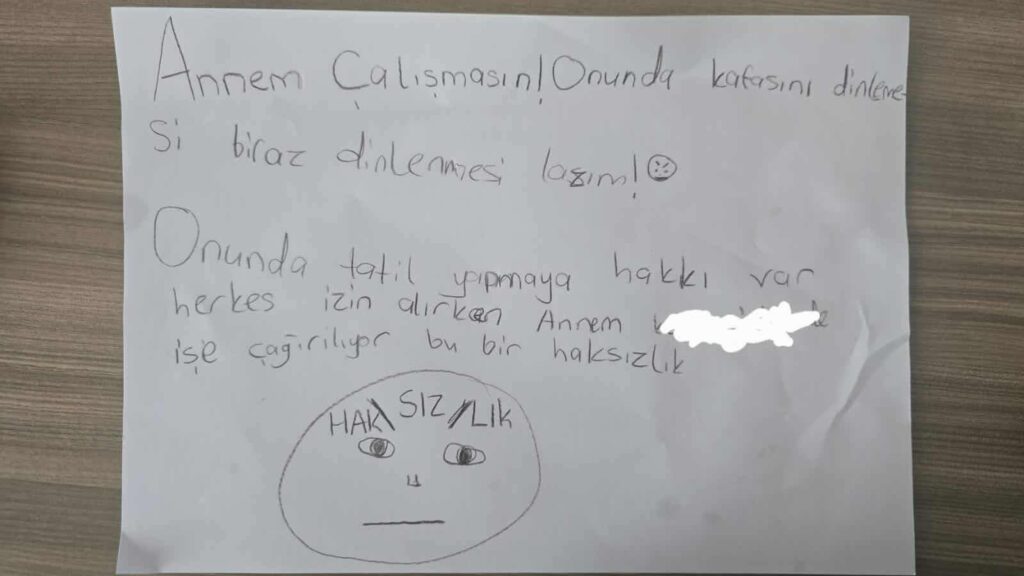 Annem Çalışmasın! Onunda kafasını dinleme-
si biraz dinlenmesi lazım!
Onunda tatil yapmaya hakkı var
herkes izin alırken Annem
işe çağırılıyor bu bir haksızlık
HAK SIZ LIK